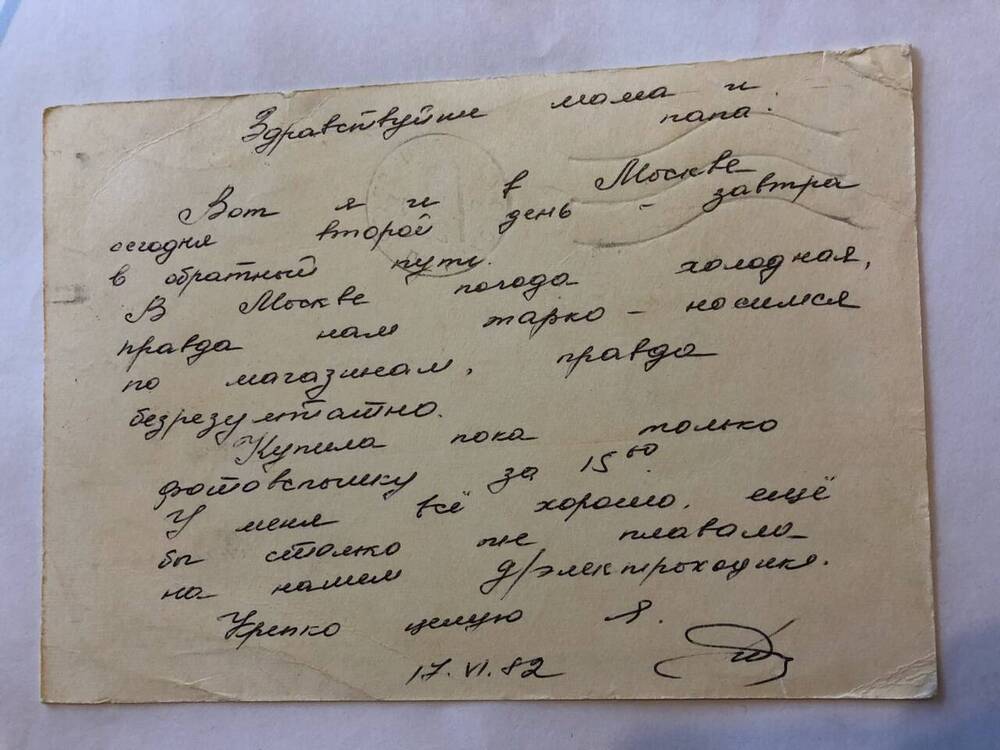 Здравствуйте мама и
папа.
Вот я и в Москве
сегодня второй день – завтра
в обратный путь.
В Москве погода холодная,
правда нам жарко – носимся
по магазинам, правда
безрезультатно.
Купила пока только
фотовспышку за 15⁶⁰.
У меня всё хорошо, ещё
бы столько же плавала
на нашем д/электроходике.
Крепко целую Я.
17.VI.82